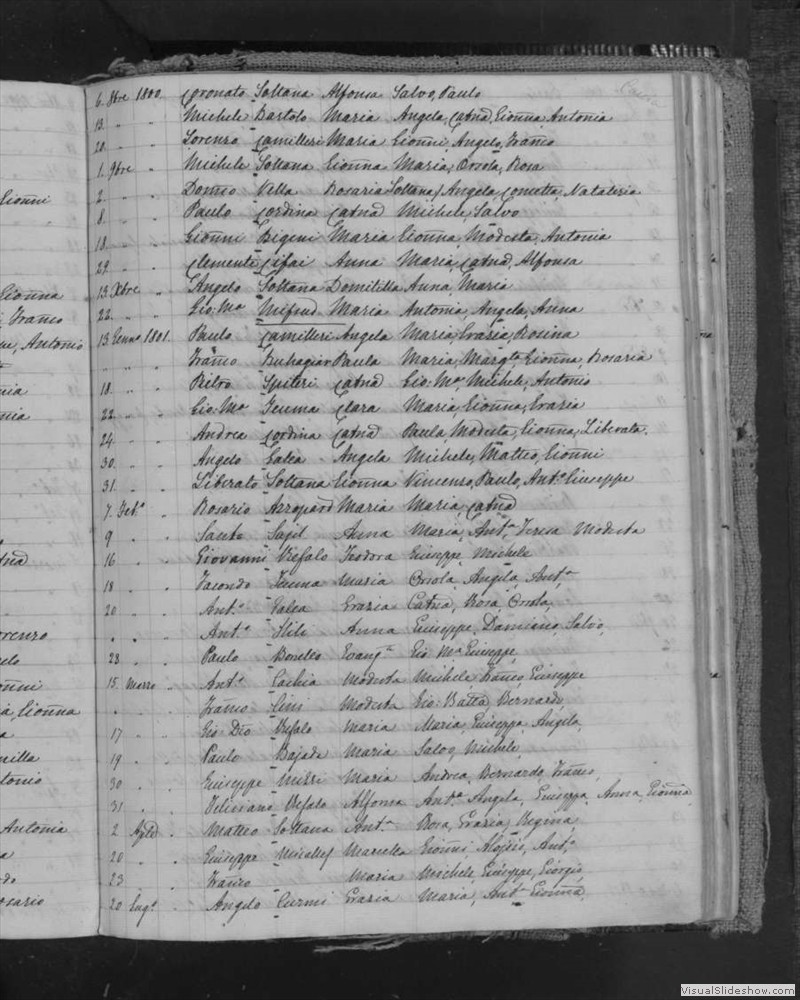 Gionni
Gionna
Franco
Antonio
nia
nia
tnd
orenzo
elo
onni
a, Gionna
a
milla
tonio
Antonia
a
do
osario
6. 8bre 1800. Coronato Soltana Alfonsa Salvo, Paulo
13. " " Michele Bartolo Maria Angela, Catnd, Gionna, Antonia
20. " " Lorenzo Camilleri Maria Gionni, Angelo, Franco
1. 9bre " Michele Soltana Gionna Maria, Orsola, Rosa
2. " " Domco Vella Rosaria Soltana, Angela, Concetta, Natalizia
8. " " Paulo Cordina Catnd Michele, Salvo
18. " " Gionni Bigeni Maria Gionna, Modesta, Antonia
29. " " Clemente Cifai Anna Maria, Catnd, Alfonsa
13. Xbre " Angelo Soltana Domitilla Anna, Maria
22. " " Gio: Ma Mifsud Maria Antonia, Angela, Anna
13. Genno 1801. Paulo Camilleri Angela Maria, Grazia, Rosina
" " " Franco Buhagiar Paula Maria, Margta, Gionna, Rosaria
18. " " Pietro Spiteri Catnd Gio: Ma, Michele, Antonio
22. " " Gio: Ma Zemma Clara Maria, Gionna, Grazia
24. " " Andrea Cordina Catnd Paula, Modesta, Gionna, Liberata.
30. " " Angelo Galea Angela Michele, Matteo, Gionni
31. " " Liberato Soltana Gionna Vincenzo, Paulo, Anto Giuseppe
7. Feb° " Rosario Azzopard Maria Maria, Catnd
9 " " Santo Sajil Anna Maria, Anta, Teresa Modesta
16 " " Giovanni Refalo Teodora Giuseppe, Michele
18 " " Facondo Zemma Maria Orsola, Angela, Anta
20 " " Anto Galea Grazia Catnd, Rosa, Orsola,
" " " Anto Stili Anna Giuseppe, Damiano, Salvo,
28 " " Paulo Bonello Evanga Gio Ma Giuseppe,
15. Marzo " Anto Cachia Modesta Michele Franco, Giuseppe
" " " Franco Cini Modesta Gio: Batta Bernardo,
17 " " Gio Dio Refalo Maria Maria, Giuseppa, Angela,
19 " " Paulo Bajada Maria Salvo, Michele,
30 " " Giuseppe Mizzi Maria Andrea, Bernardo, Franco,
31 " " Feliciano Refalo Alfonsa Anta Angela, Giuseppa, Anna, Gionna
2 Aple " Matteo Soltana Anta Rosa, Grazia, Regina,
20 " " Giuseppe Micallef Marcella Gionni, Aloisio, Anto
23 " " Franco " Maria Michele, Giuseppe, Giorgio
20 Gugo " Angelo Curmi Grazia Maria, Anta Gionna
VisualSlideshow.com